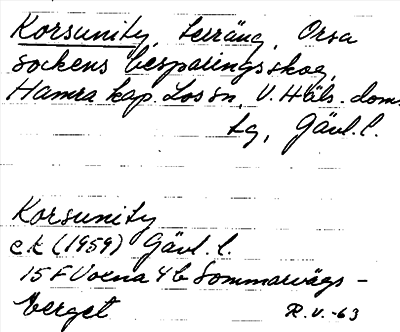 Korsunity, terräng, Orsa
sockens besparingsskog,
Hamra kap. Los sn, V. Häls. doms.
tg, Gävl. l.
Korsunity
ek (1959) Gävl. l.
15 F Voxna 4 b Sommarvägs-
berget R.V. -63